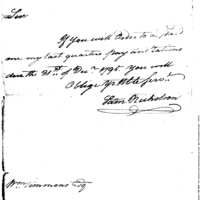 Sir
If you will Order to be paid
me my last quarters pay and rations
due the 31st of Decr 1795. You will
Oblige Yr Hble Servt
Sam Nicholson
Wm Simmons Esq